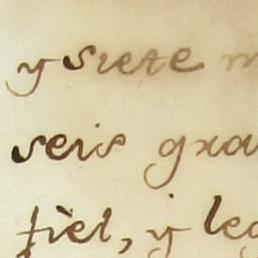 y siete
seis gra
fiel, y le